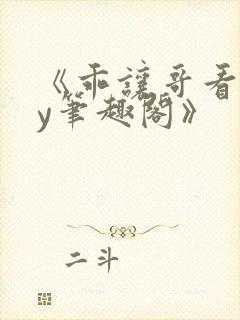 《乖讓哥看
y筆趣閣》
二斗